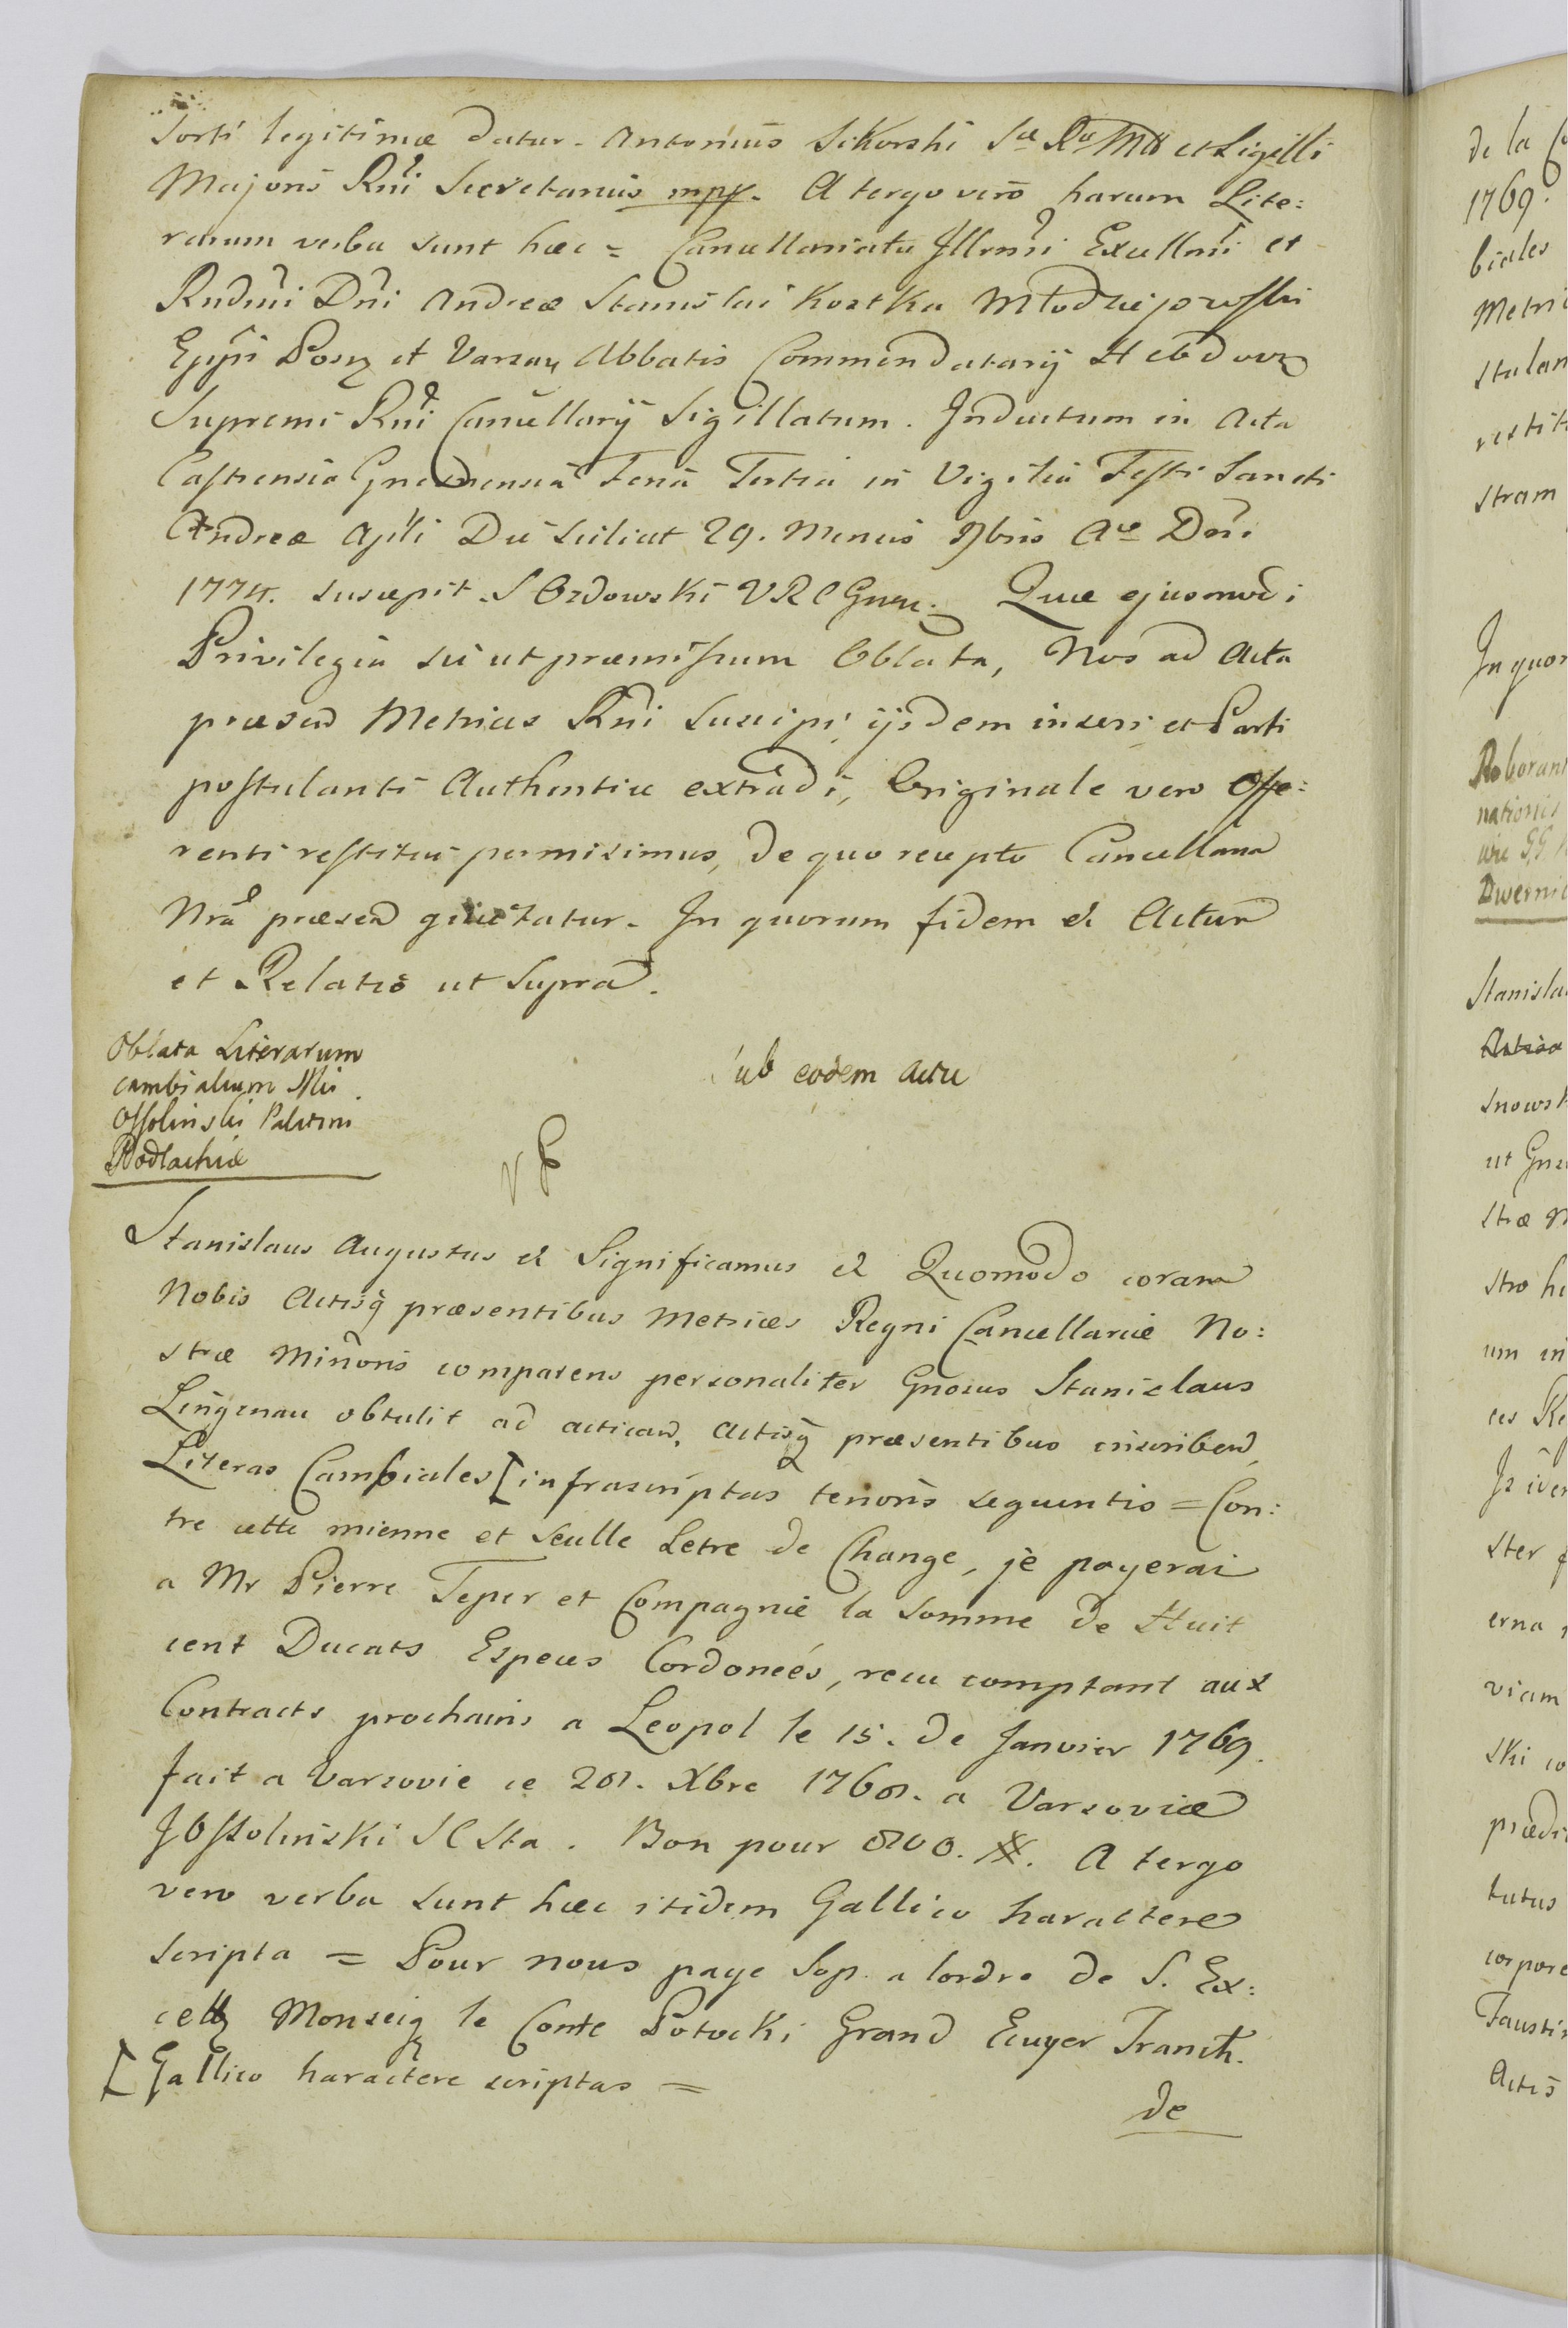 Sorti legitimæ datur. Antonius Sikorski Sæ Ræ Mtt et Sigilli
Majoris Rni Secretarius mpp. A tergo vero harum Lite:
rarum verba sunt hæc = Cancellariatu Illrmi Excellmi et
Rndmi Dni Andreæ Stanislai Kostka Młodziejowski
Eppi Posn et Varsav Abbatis Commendatarij Hebdov
Supremi Rni Cancellarij Sigillatum. Inductum in Acta
Castrensia Gnesnensia Feria Tertia in Vigilia Festi Sancti
Andreæ Apli Die scilicet 29. Mensis 9bris Ao Dni
1774. suscepit S Ordowski VRC Gnen. Quæ ejusmodi
Privilegia sic ut præmissum Oblata, Nos ad Acta
præsen Metrices Rni Suscipi, ijsdem inseri et Parti
postulanti Authentice extradi, Originale vero Offe:
renti restitui permisimus, de quo recepto Cancellaria
Nra præsen quietatur. In quorum fidem et Actum
et Relatio ut supra.
Oblata Literarum
cambialium Mci
Ossolinski Palatini
Podlachiæ
Sub eodem actu
Stanislaus Augustus et Significamus et Quomodo coram
Nobis Actisq præsentibus Metrices Regni Cancellariæ No:
stræ Minoris comparens personaliter Gnosus Stanislaus
Lingenau obtulit ad actican, Actisq præsentibus inscriben,
Literas Cambiales [infrascriptas tenoris sequentis = Con:
tre cette mienne et seulle Letre de Change, je payerai
a Mr Pierre Teper et Compagnie la somme de Huit
cent Ducats Especes Cordoneés, recu comptant aux
Contracts prochains a Leopol le 15. de Janvier 1769.
fait a Varsovie ce 28. Xbre 1768. a Varsoviæ
J Ossolinski SC Sta. Bon pour 800. #. A tergo
vero verba sunt hæc itidem Gallico haractere
scripta = Pour nous paye Sop. a lordre de S. Ex:
cell Monseig le Comte Potocki Grand Ecuyer Tranch.
[Gallico haractere scriptas =
de
de la
1769.
biales
Metri
stulan
restit
stram
In quor
Roborant
nationis
Dwerni
Stanisla
snowsk
ut Gn
stræ
stro h
um in
ces Re
ster
erna
viam
ski co
prædi
tutus
corpore
Fausti
Actis